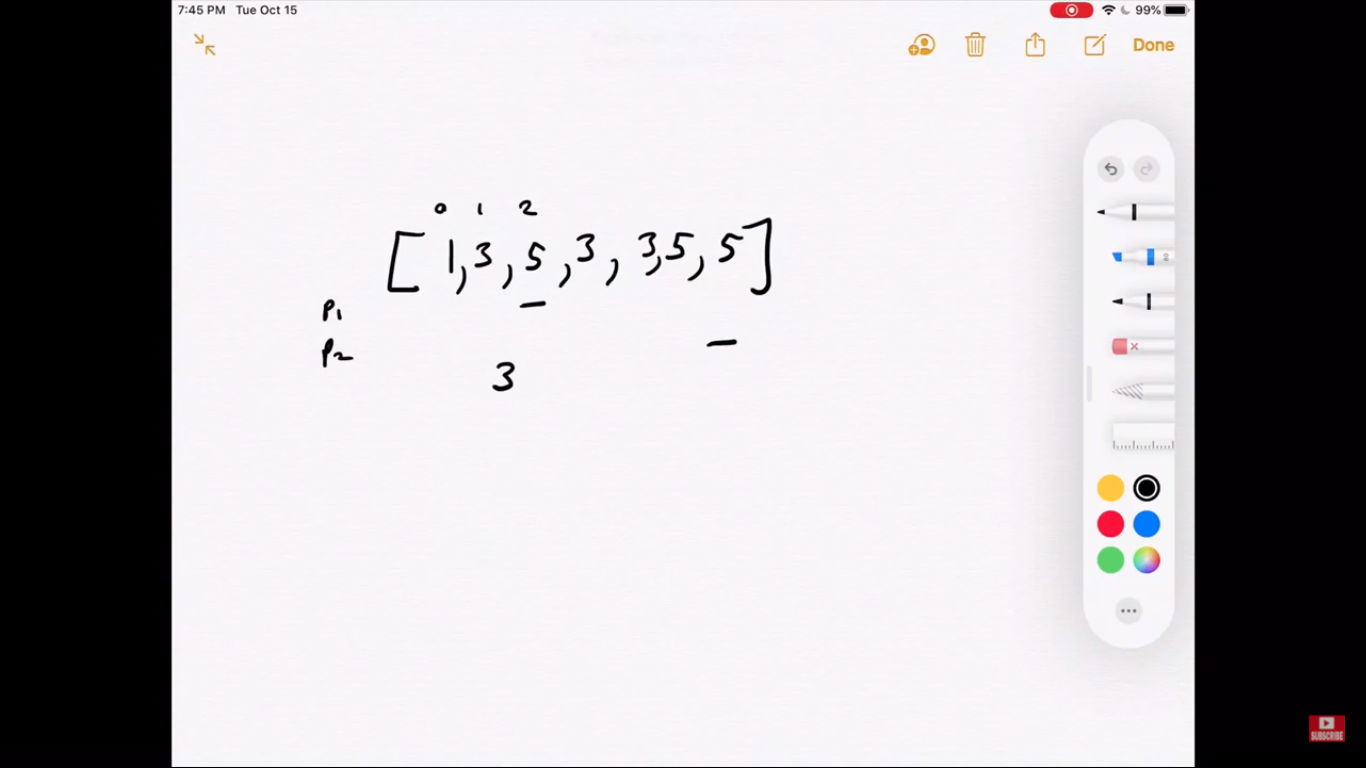 7:45 PM Tue Oct 15 99%
Done
0 1 2
[ 1,3,5,3, 3,5,5]
P1
P2
3
SUBSCRIBE